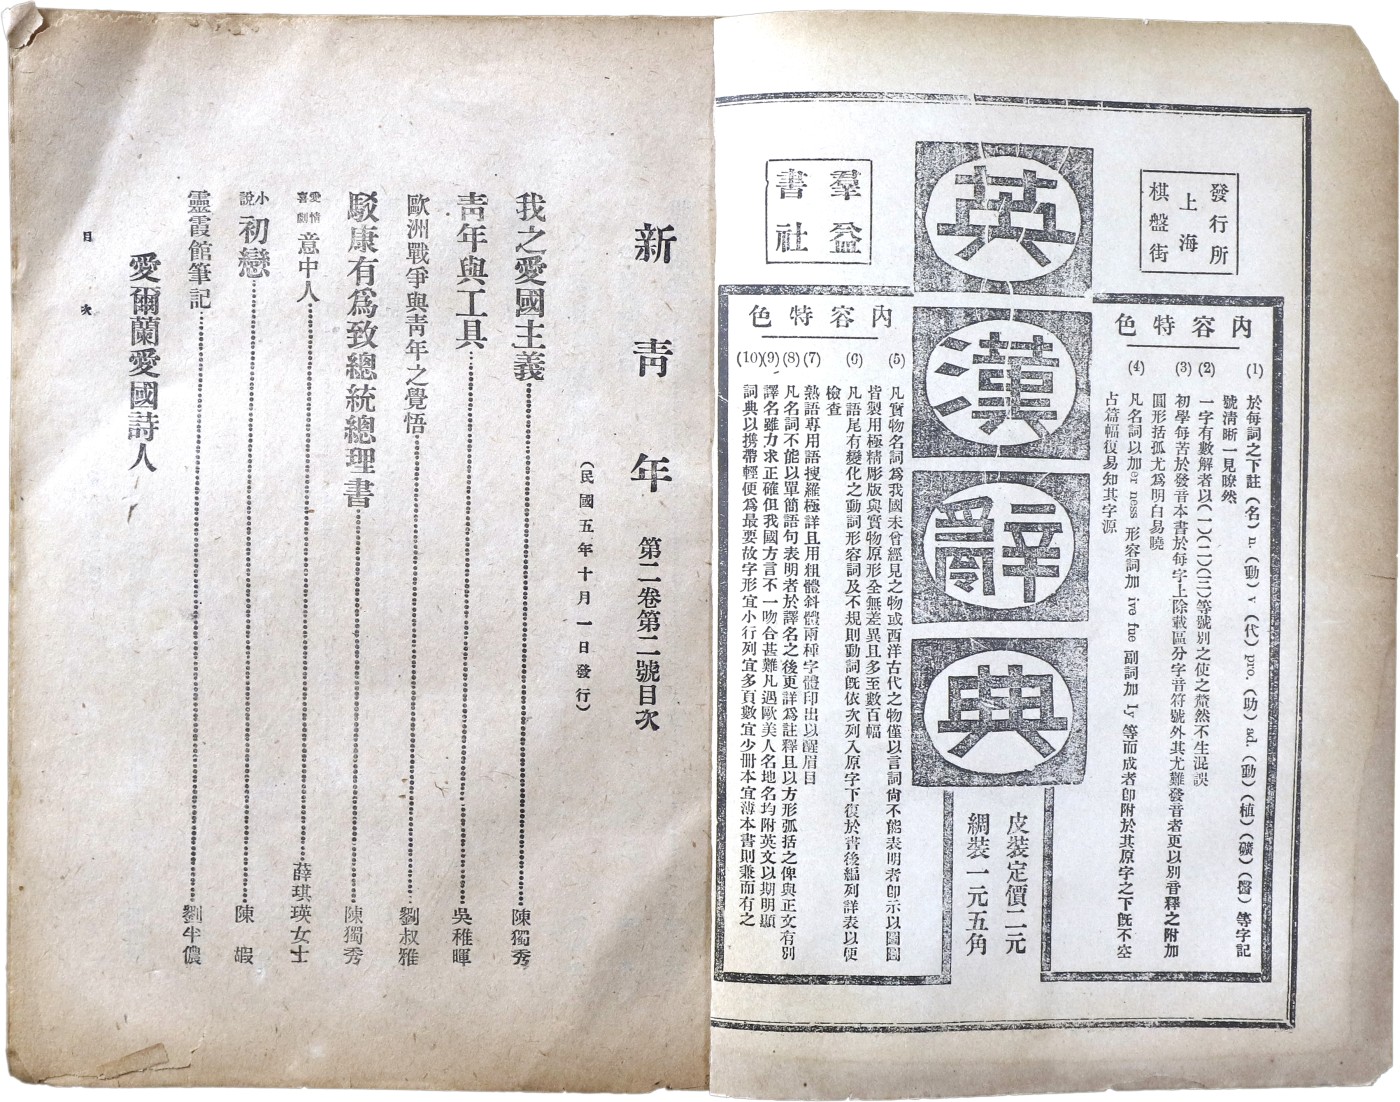 發行所
上海
棋盤街
英漢辭典
羣益
書社
內容特色
(1) 於每詞之下註(名)n.(動)v(代)pro.(助)ad.(動)(植)(礦)(醫)等字記
號清晰一見瞭然
(2) 一字有數解者以(一)(二)(三)等號別之使之釐然不生混誤
(3) 初學每苦於發音本書於每字上除載區分字音符號外其尤難發音者更以別音釋之附加
圓形括孤尤爲明白易曉
(4) 凡名詞以加er ness 形容詞加 ive fue 副詞加 ly 等而成者卽附於其原字之下旣不空
占篇幅復易知其字源
皮裝定價二元
綢裝一元五角
內容特色
(5) 凡實物名詞爲我國未曾經見之物或西洋古代之物僅以言詞尙不能表明者卽示以圖圖
皆製用極精彫版與實物原形全無差異且多至數百幅
(6) 凡語尾有變化之動詞形容詞及不規則動詞旣依次列入原字下復於書後編列詳表以便
檢查
(7) 熟語專用語搜羅極詳且用粗體斜體兩種字體印出以醒眉目
(8) 凡名詞不能以單簡語句表明者於譯名之後更詳爲註釋且以方形弧括之俾與正文有別
(9) 譯名雖力求正確但我國方言不一吻合甚難凡遇歐美人名地名均附英文以期明顯
(10) 詞典以携帶輕便爲最要故字形宜小行列宜多頁數宜少册本宜薄本書則兼而有之
新靑年 第二卷第二號目次
(民國五年十月一日發行)
我之愛國主義……陳獨秀
靑年與工具……吳稚暉
歐洲戰爭與靑年之覺悟……劉叔雅
駁康有爲致總統總理書……陳獨秀
愛情喜劇 意中人……薛琪瑛女士
小說 初戀……陳嘏
靈霞館筆記……劉半儂
愛爾蘭愛國詩人
目次